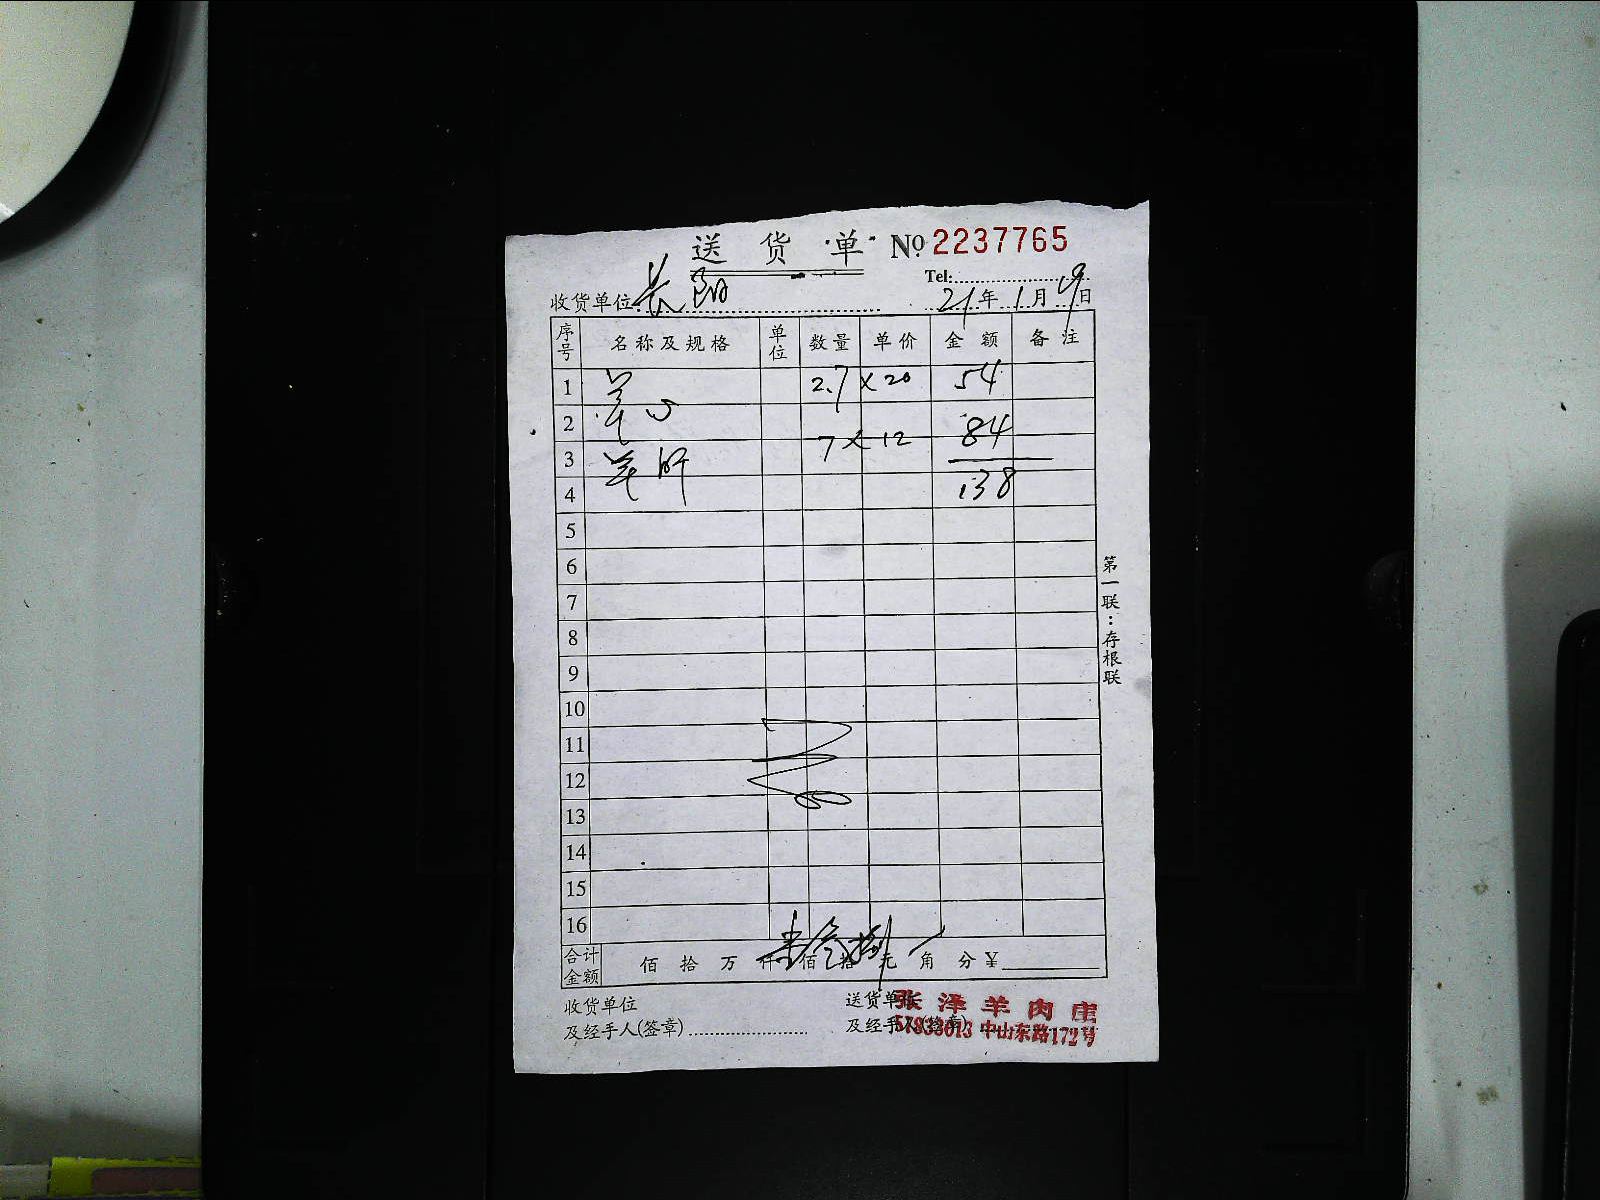 送货单 No 2237765
Tel:
收货单位 长阳 21年1月9日
序号 名称及规格 单位 数量 单价 金额 备注
1 羊心 2.7 × 20 54
2 7 × 12 84
3 羊肝
4 138
5
6
7
8
9
10
11
12
13
14
15
16
合计金额 佰 拾 万 仟 佰 拾 元 角 分 ¥
收货单位 送货单位
及经手人(签章) 及经手人(签章)
张泽羊肉庄
57833013 中山东路172号
第一联：存根联